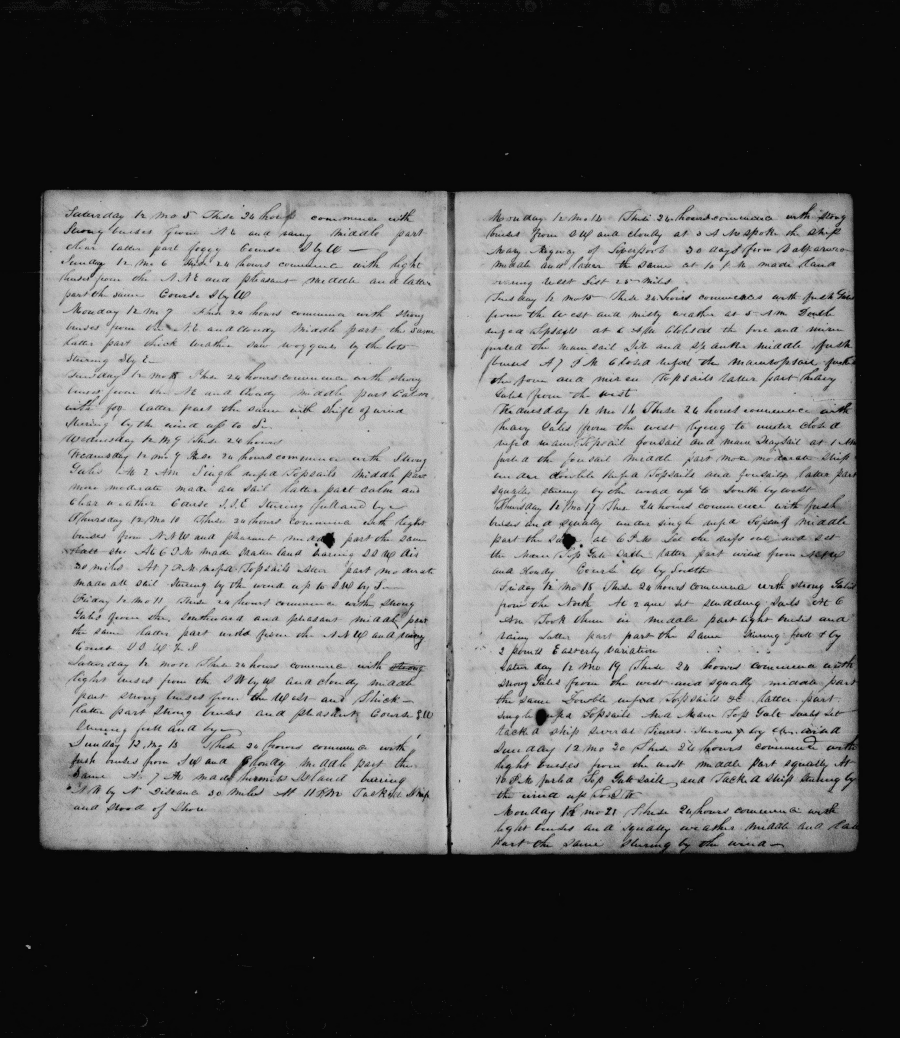 Saturday 12 mo 5 These 24 hours commence with
Strong brises from N E and rainy middle part
clear latter part foggy Course S by W
Sunday 12 mo 6 These 24 hours commence with light
brises from the N N E and pleasant middle and latter
part the same Course S by W
Monday 12 m 7 These 24 hours commence with strong
brises from the N E and cloudy Middle part the same
latter part thick weather saw by the lots
Stering S by E
12 mo 8 These 24 hours commence with strong
brises from the N E and cloudy middle part calm
with fog latter part the same with shift of wind
Stering by the wind up to S
Wednesday 12 M 9 These 24 hours
Wednesday 12 mo 9 These 24 hours commence with Strong
Gales At 2 A m Single refd Topsails Middle part
more moderate made all sail latter part calm and
clear weather Course S S E Stering full and bye
Thursday 12 Mo 10 These 24 hours commence with light
brises from N N W and pleasant middle part the same
At 6 P M made land baring S S W dis
30 miles At 7 P M refd Topsails Latter part moderate
made all sail Stering by the wind up to S W by S
Friday 12 mo 11 These 24 hours commence with strong
Gales from the Southward and pleasant middle part
the same latter part wind from the N N W and rainy
Course S S W
Saturday 12 mo 12 These 24 hours commence with strong
light brises from the S W by W and cloudy middle
part strong brises from the West and Thick
latter part Strong brises and pleasant Course S W
Stering full and by
Sunday 12 Mo 13 These 24 hours commence with
fresh brises from S W and Cloudy middle part the
Same At 7 A M made Island baring
S W by W Distance 30 miles At 11 P M Tacked Ship
and stood of Shore
Monday 12 mo 14 These 24 hours commence with strong
brises from S W and cloudy at 5 A M spoke the Ship
Mary of Liverpool 30 days from Valparaiso
middle and latter the same at 10 P M made land
West Dist 25 Miles
Tuesday 12 mo 15 These 24 hours commences with fresh Gales
from the West and misty weather at 5 A M Double
refed Topsails at 6 A M Closed the fore and mizen
furled the mainsail Jib and middle fresh
brises A 7 P M Closed refed the maintopsail furled
the fore and mizen Topsails latter part heavy
Gales from the west
Wednesday 12 Mo 16 These 24 hours commence with
heavy Gales from the west lying to under closed
refed main Topsail foursail and main Staysail at 1 A M
furled the foursail middle part more moderate Ship
under double refed Topsails and foursails latter part
squally stering by the wind up to South by west
Thursday 12 Mo 17 These 24 hours commence with fresh
brises and squally under single refd Topsails middle
part the same at 6 P M let the refs out and set
the Main Top Galt Sail latter part wind from
and Course W by South
Friday 12 mo 18 These 24 hours commence with strong Gales
from the North At 2 am set studding Sails At 6
A m Took them in middle part light brises and
rainy latter part part the same Stering full & by
2 points Easterly Variation
Saterday 12 Mo 19 These 24 hours commence with
strong Gales from the west and squally middle part
the same Double refed Topsails &c latter part
single refd Topsails And Main Top Galt Sails Set
tackd ship several Times by the wind
Sunday 12 mo 20 These 24 hours commence with
light brises from the west middle part squally At
10 P M furled Top Galt Sails and Tackd Ship Stering by
the wind up to S W
Monday 12 mo 21 These 24 hours commence with
light brises and squally weather middle and latter
part the same Stering by the wind